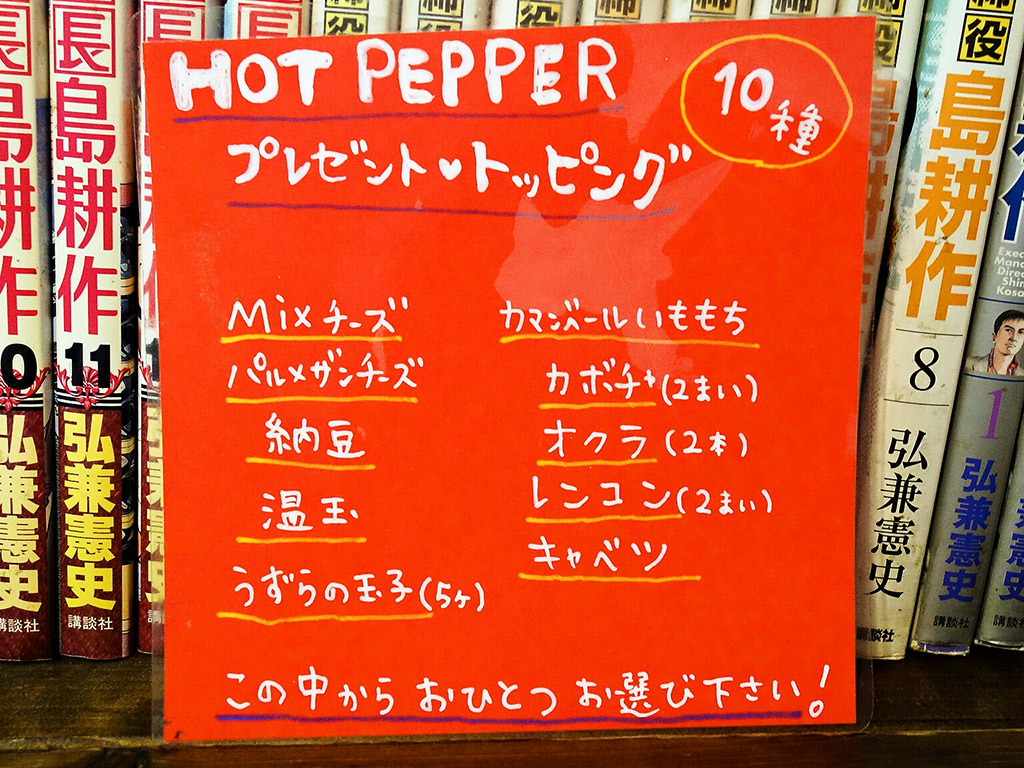 HOT PEPPER
10種
プレゼント♥トッピング
Mixチーズ
パルメザンチーズ
納豆
温玉
うずらの玉子(5ヶ)
カマンベールいももち
カボチャ(2まい)
オクラ(2本)
レンコン(2まい)
キャベツ
この中から おひとつ お選び下さい!
長
島耕作
弘兼憲史
講談社
長
島耕作
11
弘兼憲史
講談社
役
島耕作
8
弘兼憲史
講談社
役
島耕作
1
弘兼憲史
講談社